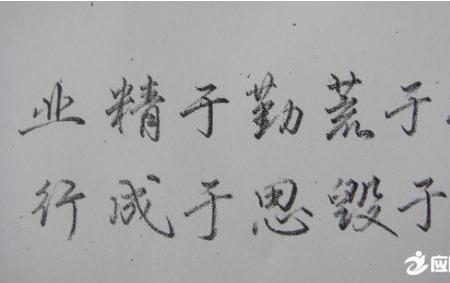 业精于勤荒于
行成于思毁于
应